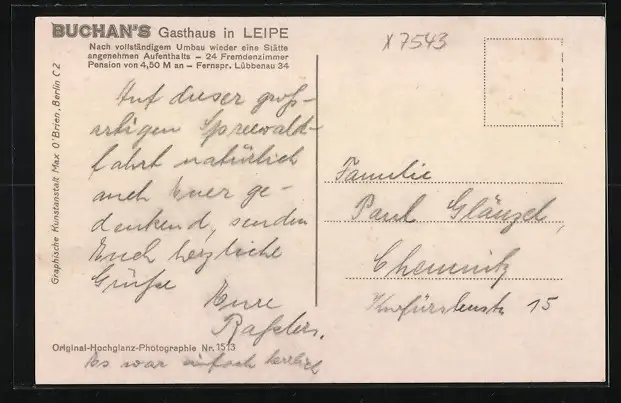 BUCHAN'S Gasthaus in LEIPE
Nach vollständigem Umbau wieder eine Stätte
angenehmen Aufenthalts – 24 Fremdenzimmer
Pension von 4,50 M an – Fernspr. Lübbenau 34
Graphische Kunstanstalt Max O'Brien, Berlin C 2
Auf dieser groß-
artigen Spreewald-
fahrt natürlich
auch Euer ge-
denkend, senden
Euch herzliche
Grüße
Eure
Original-Hochglanz-Photographie Nr. 1513
Es war einfach herrlich
X 7543
Familie
Paul Glänzel,
Chemnitz
15